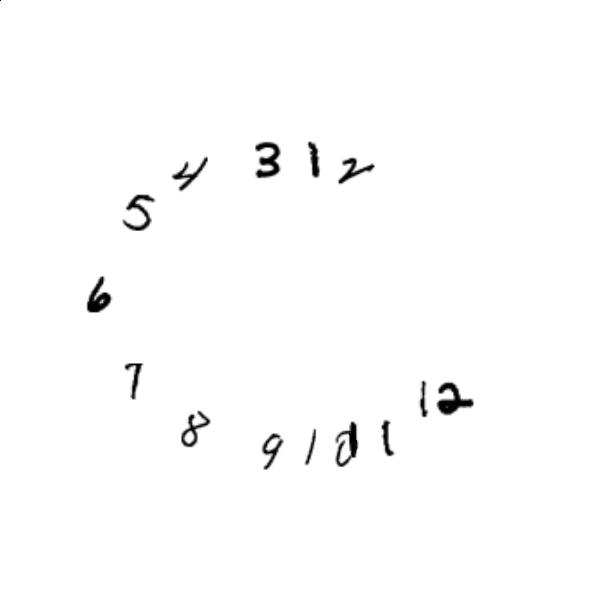 3 1 2
4
5
6
7
8
9 10 11
12